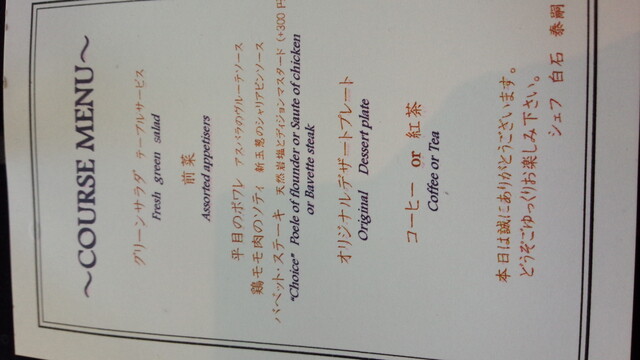 ～COURSE MENU～
グリーンサラダ テーブルサービス
Fresh green salad
前菜
Assorted appetisers
平目のポワレ アスパラのヴルーテソース
鶏モモ肉のソティ 新玉葱のシャリアピンソース
バベット・ステーキ 天然岩塩とディジョンマスタード (+300円
"Choice" Poele of flounder or Saute of chicken
or Bavette steak
オリジナルデザートプレート
Original Dessert plate
コーヒー or 紅茶
Coffee or Tea
本日は誠にありがとうございます。
どうぞごゆっくりお楽しみ下さい。
シェフ 白石 泰嗣